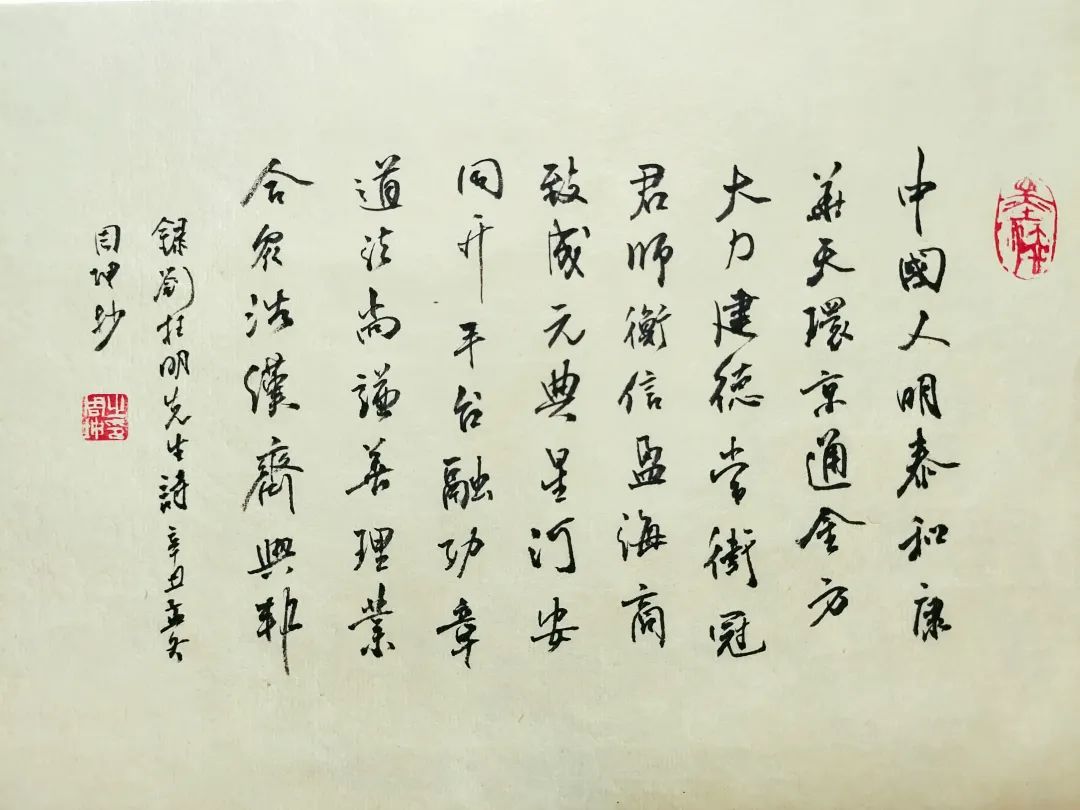 中國人明泰和康
華天環京通全方
大力建德常衛冠
君師衡信盈海商
致成元典星河安
同開平台融功章
道法尚謙善理業
合眾浩漢齊興邦
錄蘭拄明先生詩辛丑孟冬
周坤抄